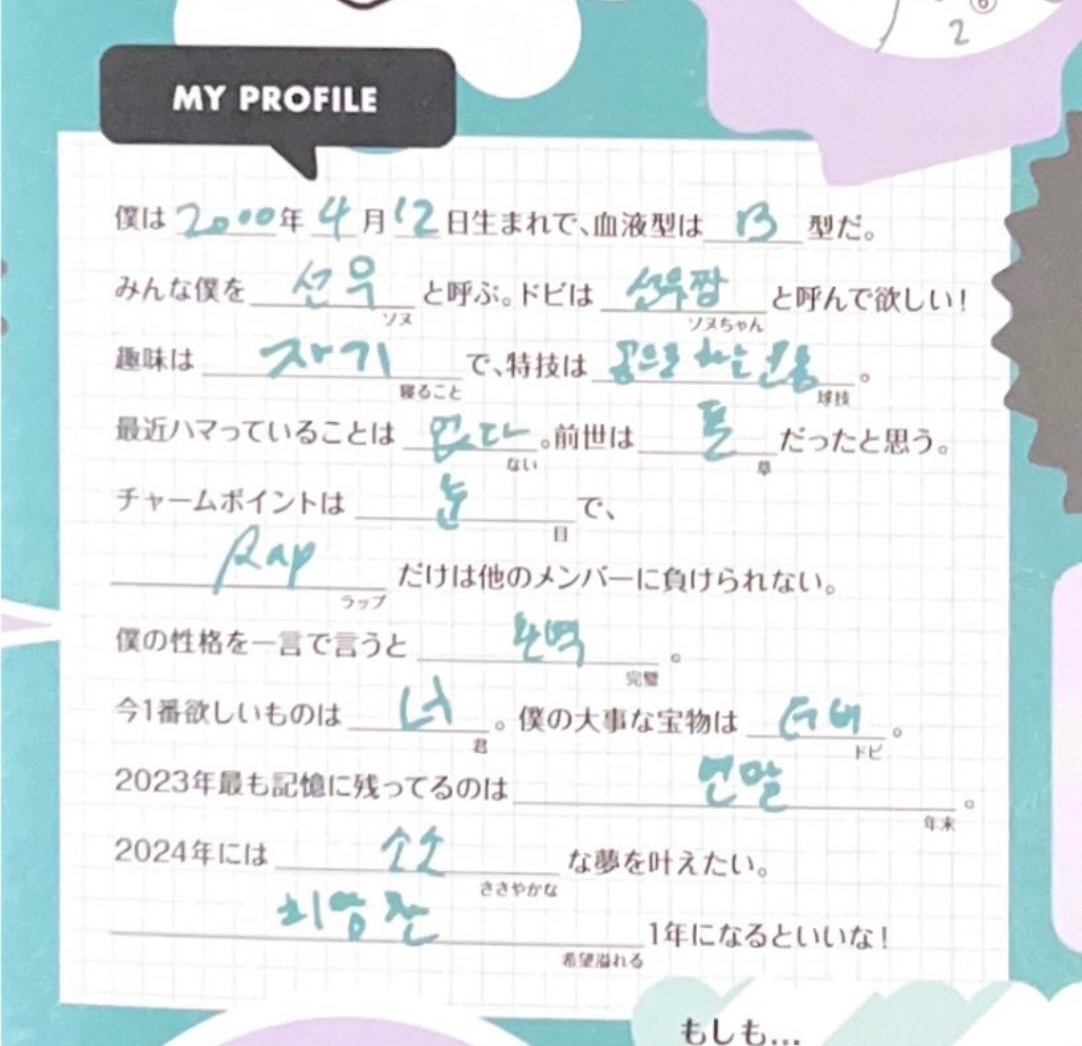 ⑥
2
MY PROFILE
僕は 2000年 4月 12日生まれで、血液型は B 型だ。
みんな僕を 선우 と呼ぶ。ドビは 선우짱 と呼んで欲しい!
ソヌ ソヌちゃん
趣味は 자기 で、特技は 공으로 하는 운동 。
寝ること 球技
最近ハマっていることは 없다 。前世は 풀 だったと思う。
ない 草
チャームポイントは 눈 で、
目
Rap だけは他のメンバーに負けられない。
ラップ
僕の性格を一言で言うと 완벽 。
完璧
今1番欲しいものは 너 。僕の大事な宝物は 더비 。
君 ドビ
2023年最も記憶に残ってるのは 연말 。
年末
2024年には 소소 な夢を叶えたい。
ささやかな
희망찬 1年になるといいな!
希望溢れる
もしも...